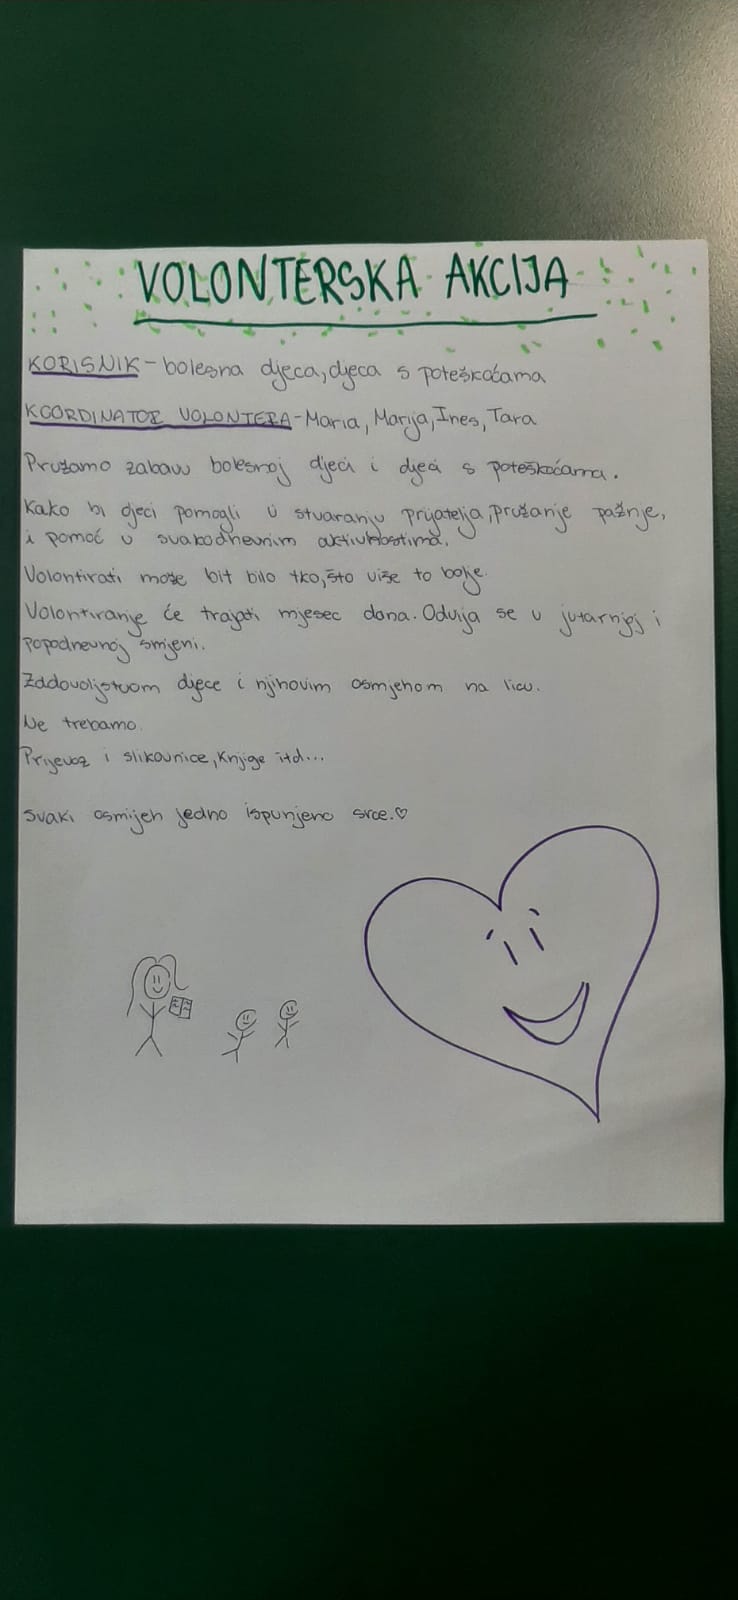 VOLONTERSKA AKCIJA
KORISNIK - bolesna djeca, djeca s poteškoćama
KOORDINATOR VOLONTERA - Maria, Marija, Ines, Tara
Pružamo zabavu bolesnoj djeci i djeci s poteškoćama.
Kako bi djeci pomogli u stvaranju prijatelja, pružanje pažnje,
i pomoć u svakodnevnim aktivnostima.
Volontirati može bit bilo tko, što više to bolje.
Volontiranje će trajati mjesec dana. Odvija se u jutarnjoj i
popodnevnoj smjeni.
Zadovoljstvom djece i njihovim osmjehom na licu.
Ne trebamo.
Prijevoz i slikovnice, knjige itd...
Svaki osmijeh jedno ispunjeno srce.♡